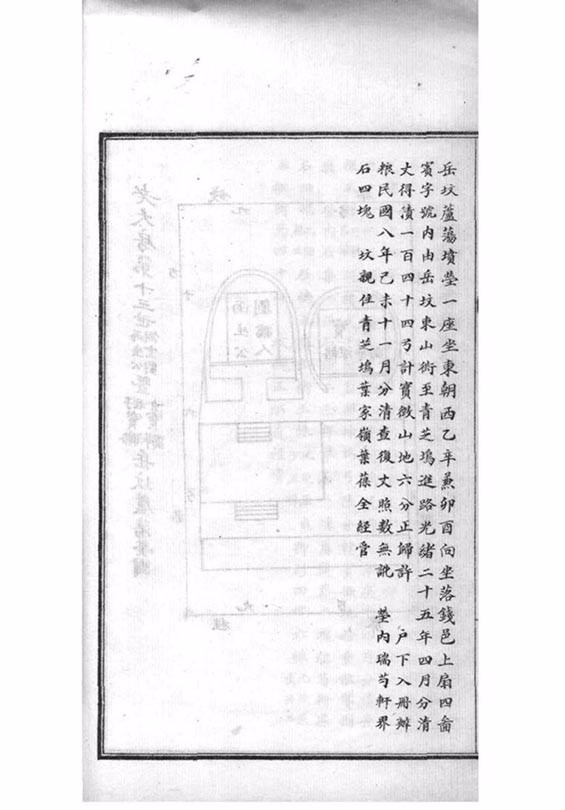 岳坟蘆蕩墳塋一座坐東朝西乙辛兼卯酉向坐落錢邑上扇四啚
賓字號内由岳坟東山衖至青芝塢進路光緒二十五年四月分清
丈得漬一百四十四弓計實徵山地六分正歸許 户下入册辦
粮民國八年己未十一月分清查復丈照數無訛 塋内瑞芍軒界
石四塊 坟親住青芝塢葉家嶺葉葆全經管